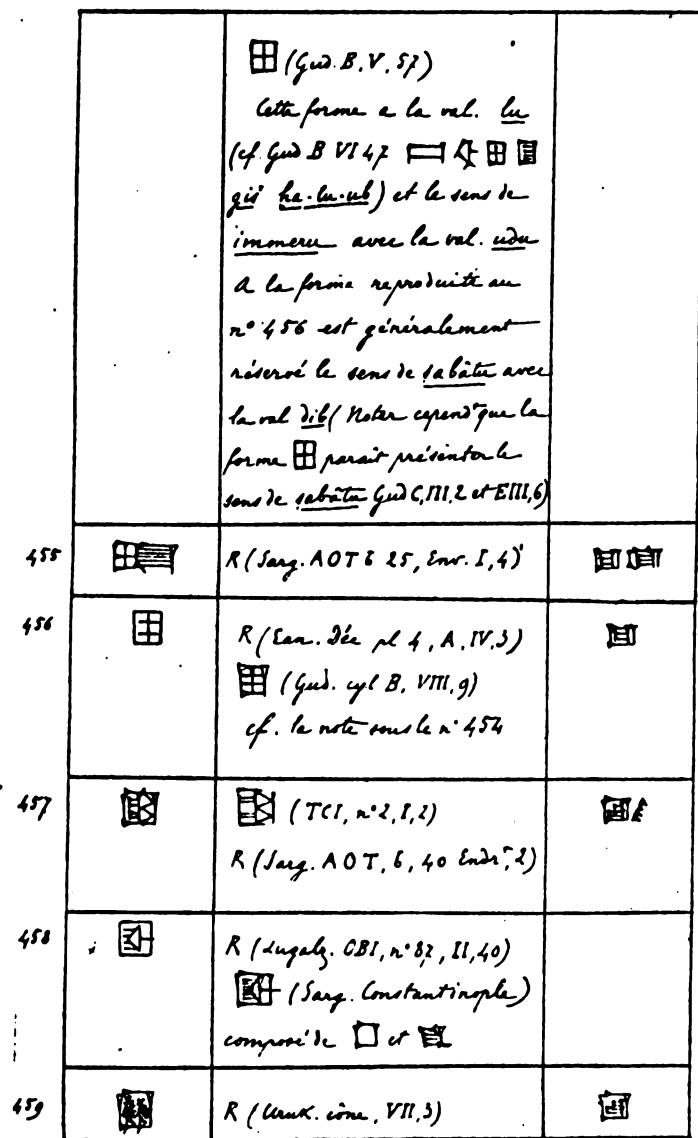 (Gud. B. V, 57)
Cette forme a la val. lu
(cf. Gud B VI 47
giš ha-lu-ub) et le sens de
immeru avec la val. udu
A la forme reproduite au
n° 456 est généralement
réservé le sens de sabâtu avec
la val dib (Noter cependt que la
forme parait présenter le
sens de sabâtu Gud C, III, 2 et E III, 6)
455 R (Sarg. AOT 6 25, Env. I, 4)
456 R (Ean. Déc pl 4, A, IV, 3)
(Gud. cyl B, VIII, 9)
cf. la note sous le n° 454
457 (TCI, n° 2, I, 2)
R (Sarg. AOT, 6, 40 Endrt, 2)
458 R (Lugalz. CBI, n° 87, II, 40)
(Sarg. Constantinople)
composé de et
459 R (Uruk. cône, VII, 3)